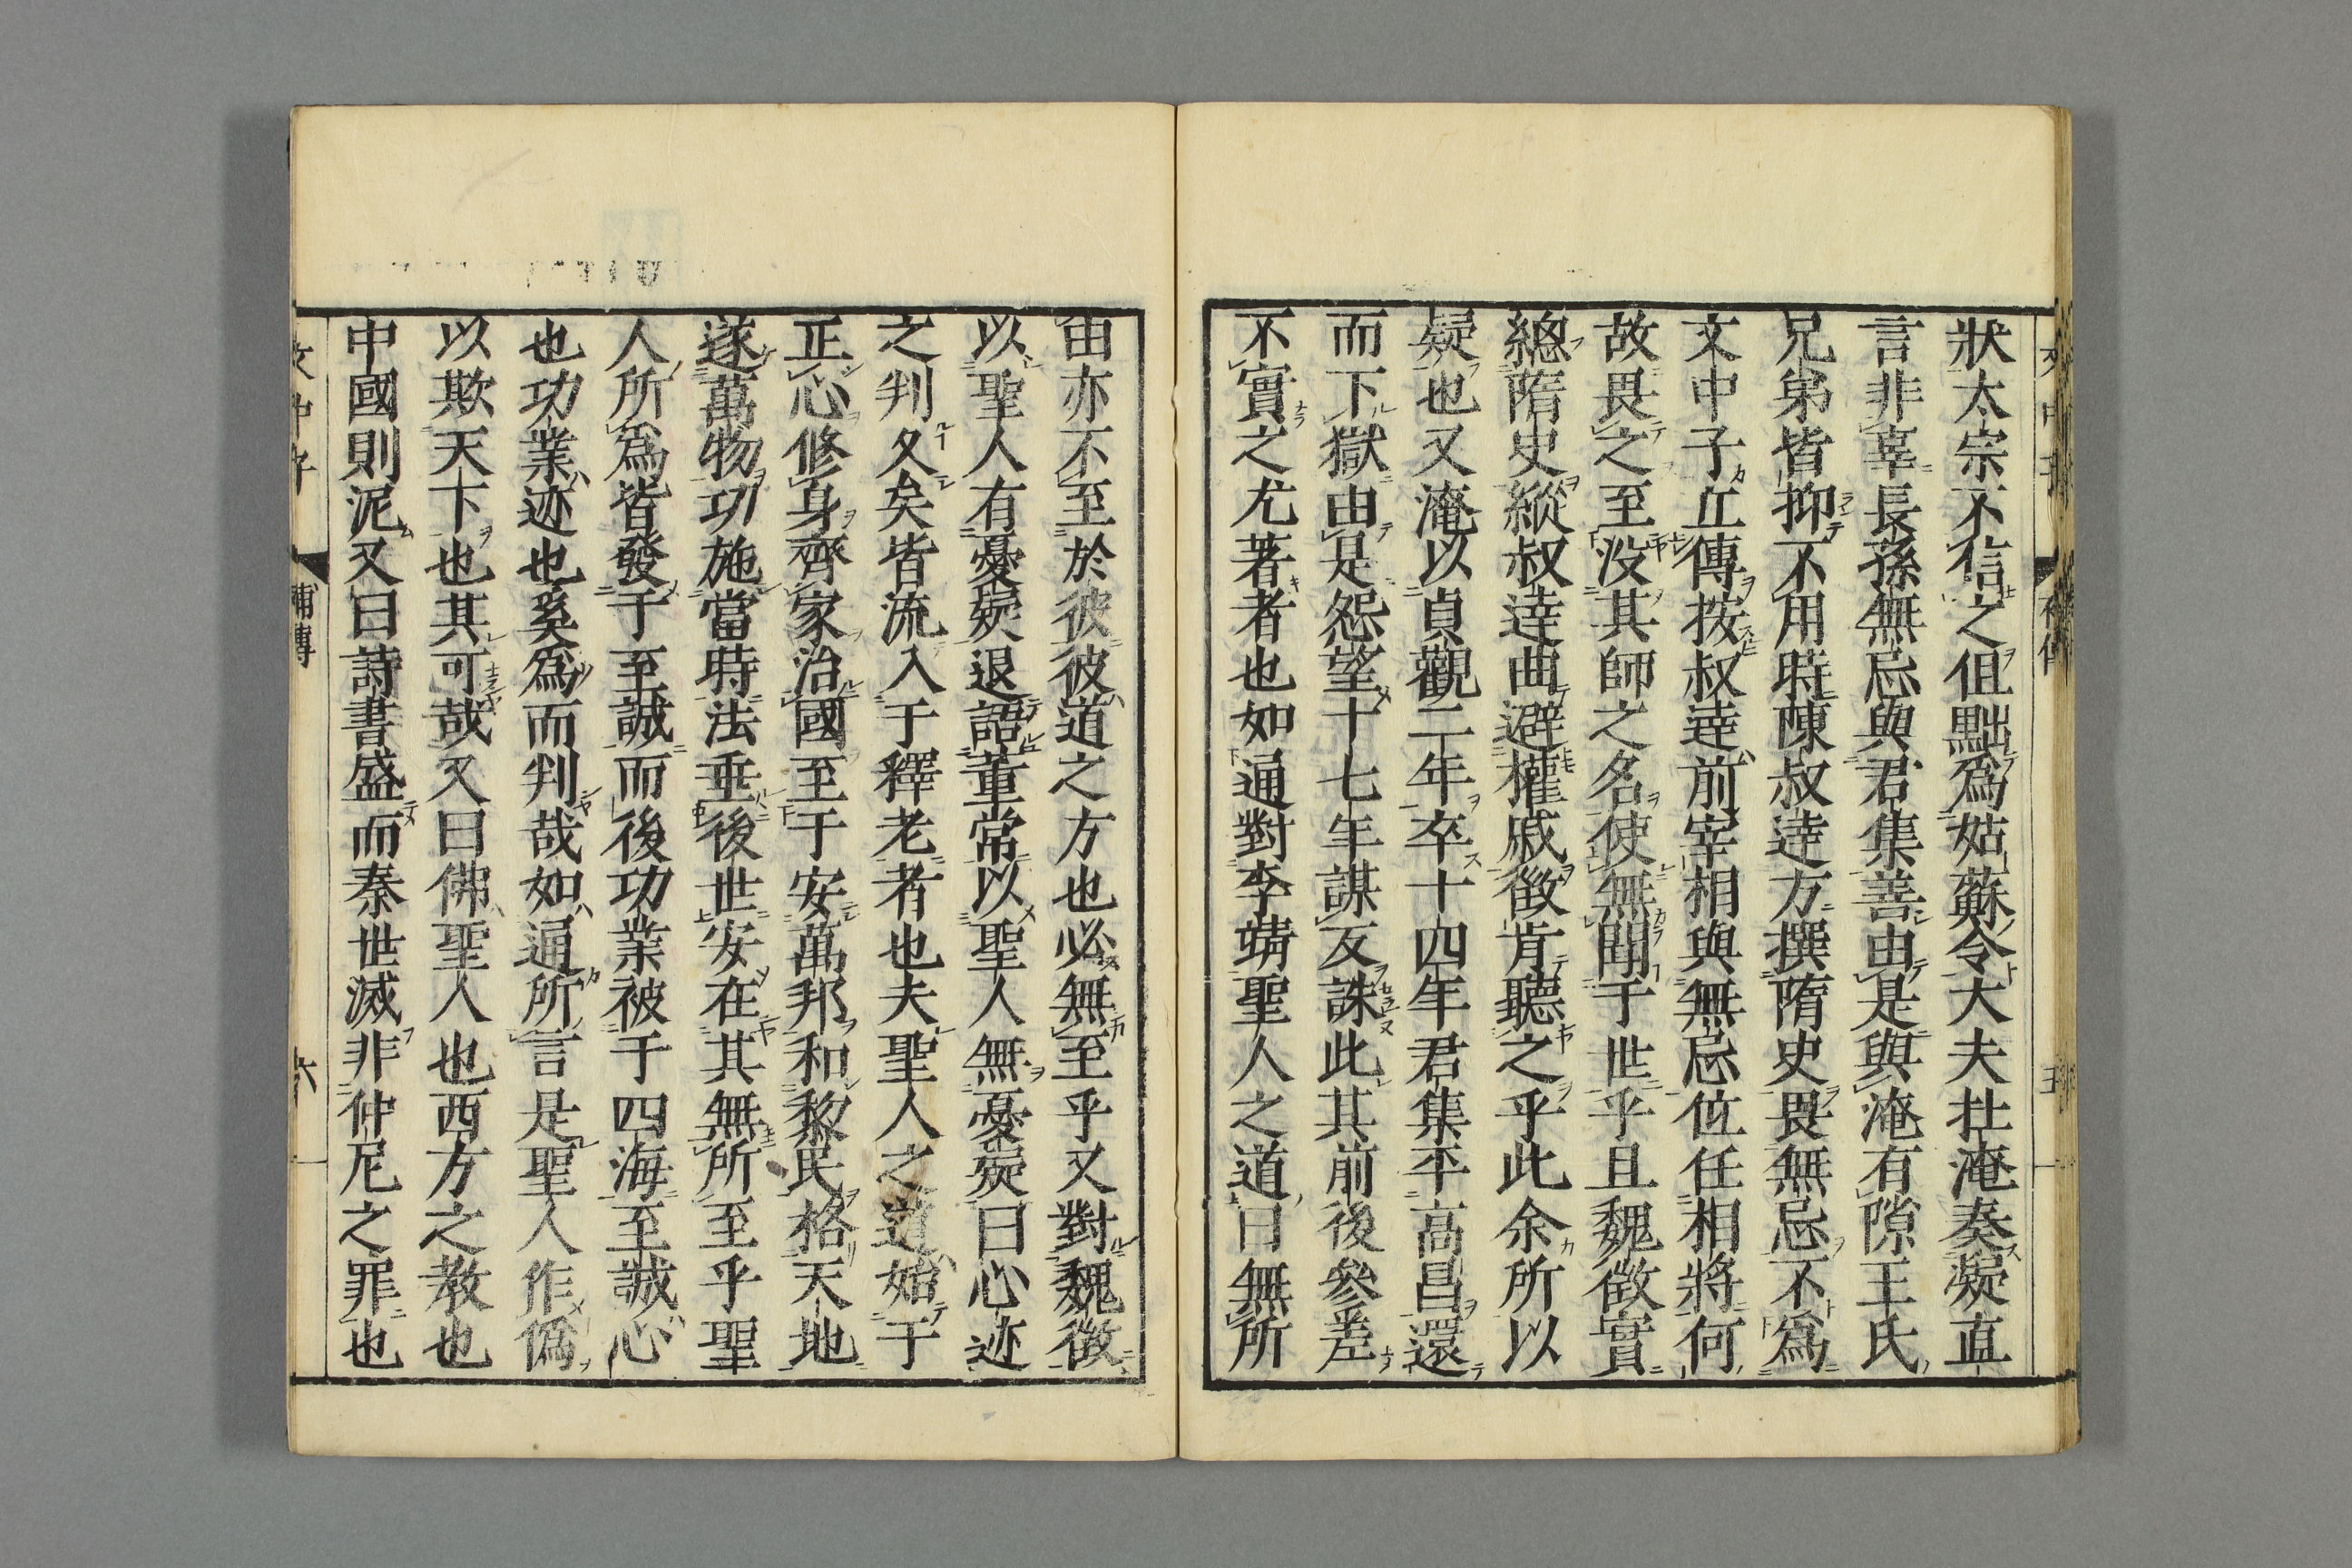 狀太宗不信之但黜爲姑蘇令大夫杜淹奏凝直
言非辜長孫無忌與君集善由是與淹有隙王氏
兄弟皆抑不用時陳叔達方撰隋史畏無忌不爲
文中子立傳按叔達前宰相與無忌位任相將何
故畏之至没其師之名使無聞于世乎且魏徵實
總隋史縱叔達曲避權戚徵肯聽之乎此余所以
疑也又淹以貞觀二年卒十四年君集平高昌還
而下獄由是怨望十七年謀反誅此其前後參差
不實之尤著者也如通對李靖聖人之道曰無所
由亦不至於彼彼道之方也必無至乎又對魏徵
以聖人有憂疑退語董常以聖人無憂疑曰心迹
之判久矣皆流入于釋老者也夫聖人之道始于
正心修身齊家治國至于安萬邦和黎民格天地
遂萬物功施當時法垂後世安在其無所至乎聖
人所爲皆發于至誠而後功業被于四海至誠心
也功業迹也奚爲而判哉如通所言是聖人作僞
以欺天下也其可哉又曰佛聖人也西方之教也
中國則泥又曰詩書盛而秦世滅非仲尼之罪也
文中子
補傳
六